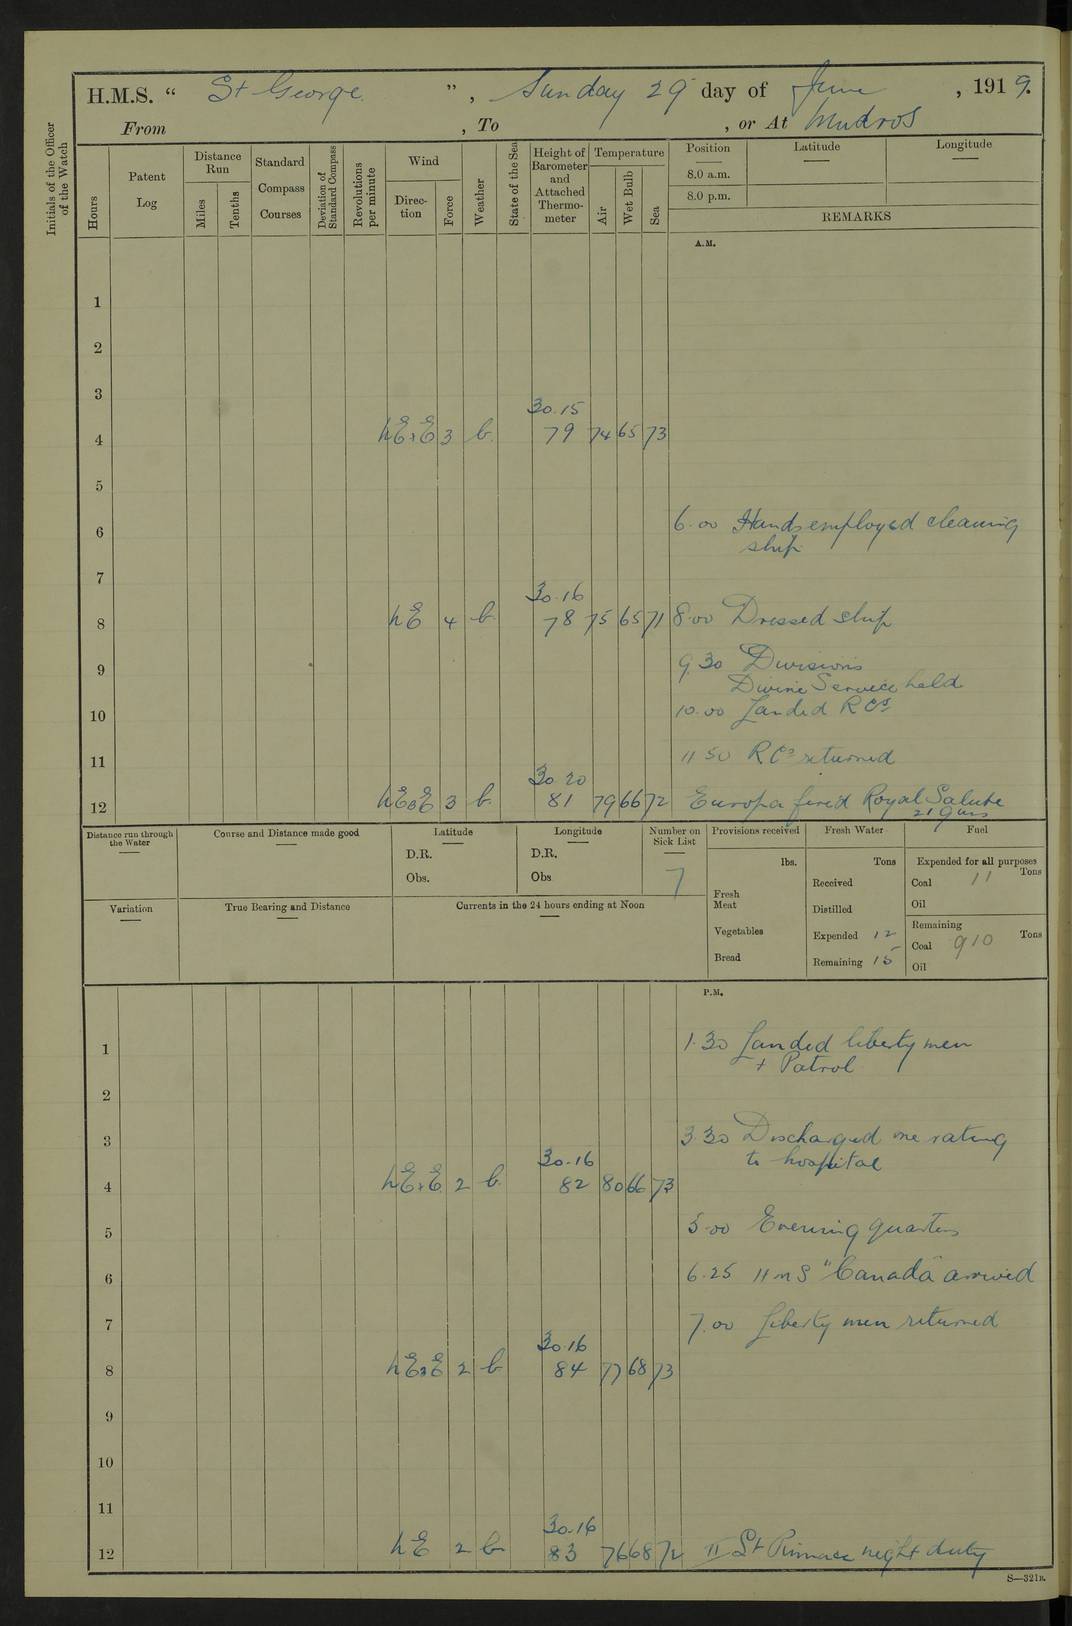 H.M.S. “ St George ” , Sunday 29 day of June , 1919.
From , To , or At Mudros
Initials of the Officer of the Watch
Hours
Patent Log
Distance Run
Miles
Tenths
Standard Compass Courses
Deviation of Standard Compass
Revolutions per minute
Wind
Direction
Force
Weather
State of the Sea
Height of Barometer and Attached Thermometer
Temperature
Air
Wet Bulb
Sea
Position
8.0 a.m.
8.0 p.m.
Latitude
Longitude
REMARKS
A.M.
1
2
3
30.15
4 NExE 3 b. 79 74 65 73
5
6 6.00 Hands employed cleaning
ship
7
30.16
8 NE 4 b. 78 75 65 71 8.00 Dressed ship
9 9.30 Divisions
Divine Service held
10 10.00 Landed RCs
11 11 50 R.Cs returned
30 20
12 NExE 3 b. 81 79 66 72 Europa fired Royal Salute
21 guns
Distance run through the Water
Course and Distance made good
Latitude
D.R.
Obs.
Longitude
D.R.
Obs
Number on Sick List
7
Provisions received
lbs.
Fresh Meat
Vegetables
Bread
Fresh Water
Tons
Received
Distilled
Expended 12
Remaining 15
Fuel
Expended for all purposes
Coal 11 Tons
Oil
Remaining
Coal 910 Tons
Oil
Variation
True Bearing and Distance
Currents in the 24 hours ending at Noon
P.M.
1 1.30 Landed liberty men
+ Patrol
2
3 3.30 Discharged one rating
30.16 to hospital
4 NExE 2 b. 82 80 66 73
5 5.00 Evening quarters
6 6.25 HMS "Canada" arrived
7 7.00 Liberty men returned
30.16
8 NExE 2 b 84 77 68 73
9
10
11
30.16
12 NE 2 b 83 76 68 72 II St Pinnace night duty
S—321B.